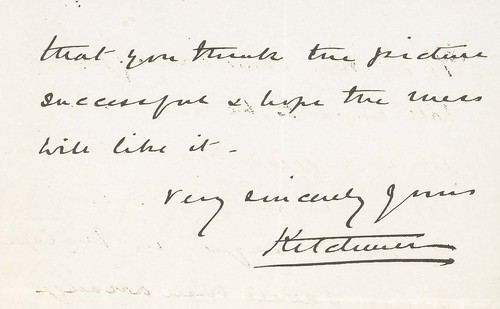 that you think the picture
successful & hope the mess
will like it -
Very sincerely yours
Kitchener